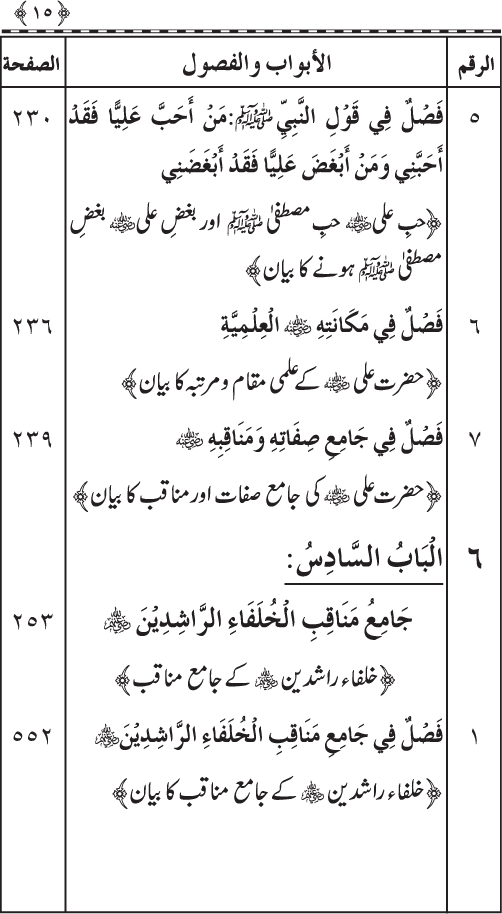 ﴿١٥﴾
الرقم الأبواب والفصول الصفحة
٥ فَصْلٌ فِي قَوْلِ النَّبِيِّ ﷺ: مَنْ أَحَبَّ عَلِيًّا فَقَدْ ٢٣٠
أَحَبَّنِي وَمَنْ أَبْغَضَ عَلِيًّا فَقَدْ أَبْغَضَنِي
﴿حبِ علی رضی اللہ عنہ حبِ مصطفیٰ ﷺ اور بغضِ علی رضی اللہ عنہ بغضِ
مصطفیٰ ﷺ ہونے کا بیان﴾
٦ فَصْلٌ فِي مَكَانَتِهِ رضی اللہ عنہ الْعِلْمِيَّةِ ٢٣٦
﴿حضرت علی رضی اللہ عنہ کے علمی مقام و مرتبہ کا بیان﴾
٧ فَصْلٌ فِي جَامِعِ صِفَاتِهِ وَمَنَاقِبِهِ رضی اللہ عنہ ٢٣٩
﴿حضرت علی رضی اللہ عنہ کی جامع صفات اور مناقب کا بیان﴾
٦ الْبَابُ السَّادِسُ:
جَامِعُ مَنَاقِبِ الْخُلَفَاءِ الرَّاشِدِيْنَ رضی اللہ عنہم ٢٥٣
﴿خلفاء راشدین رضی اللہ عنہم کے جامع مناقب﴾
١ فَصْلٌ فِي جَامِعِ مَنَاقِبِ الْخُلَفَاءِ الرَّاشِدِيْنَ رضی اللہ عنہم ٥٥٢
﴿خلفاء راشدین رضی اللہ عنہم کے جامع مناقب کا بیان﴾